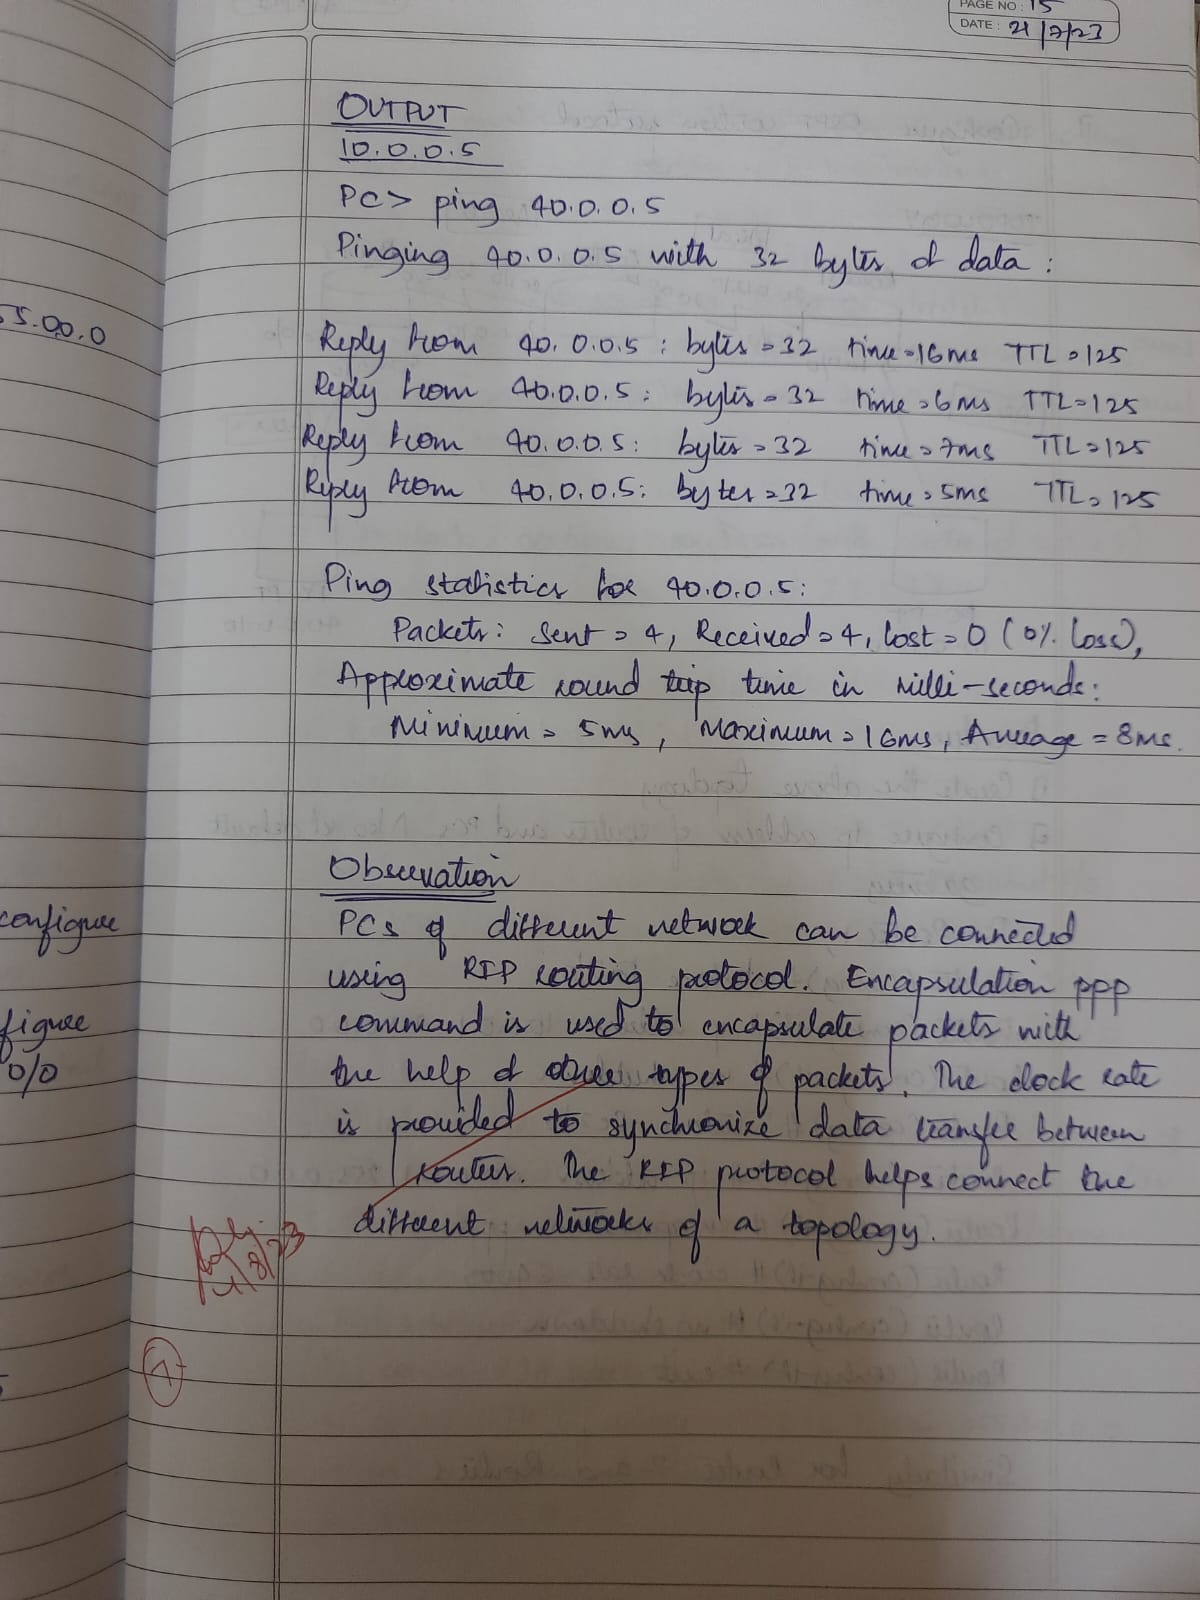 PAGE NO: 15
DATE: 21/7/23
OUTPUT
10.0.0.5
PC> ping 40.0.0.5
Pinging 40.0.0.5 with 32 bytes of data:
Reply from 40.0.0.5: bytes=32 time=16ms TTL=125
Reply from 40.0.0.5: bytes=32 time=6ms TTL=125
Reply from 40.0.0.5: bytes=32 time=7ms TTL=125
Reply from 40.0.0.5: bytes=32 time=5ms TTL=125
Ping statistics for 40.0.0.5:
Packets: Sent=4, Received=4, Lost=0 (0% loss),
Approximate round trip time in milli-seconds:
Minimum=5ms, Maximum=16ms, Average=8ms.
Observation
PCs of different network can be connected
using RIP routing protocol. Encapsulation ppp
command is used to encapsulate packets with
the help of other types of packets. The clock rate
is provided to synchronize data transfer between
routers. The RIP protocol helps connect the
different networks of a topology.
5.00.0
configure
figure
0/0